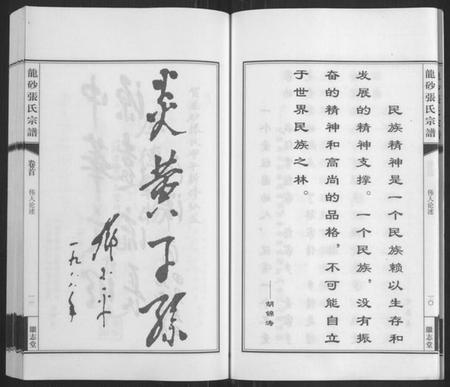 龍砂張氏宗譜
伟人论述
一〇
繼志堂
民族精神是一个民族赖以生存和
发展的精神支撑。一个民族，没有振
奋的精神和高尚的品格，不可能自立
于世界民族之林。
——胡锦涛
炎黄子孙
邓小平
一九八八年
龍砂張氏宗譜
卷首
伟人论述
一一
繼志堂